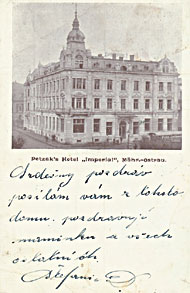 Petzák's Hotel „Imperial", Mähr.-Ostrau.
Srdečný pozdrav
posílám vám z tohoto
domu. pozdravuji
maminku a všech
ostatních
Štefanie